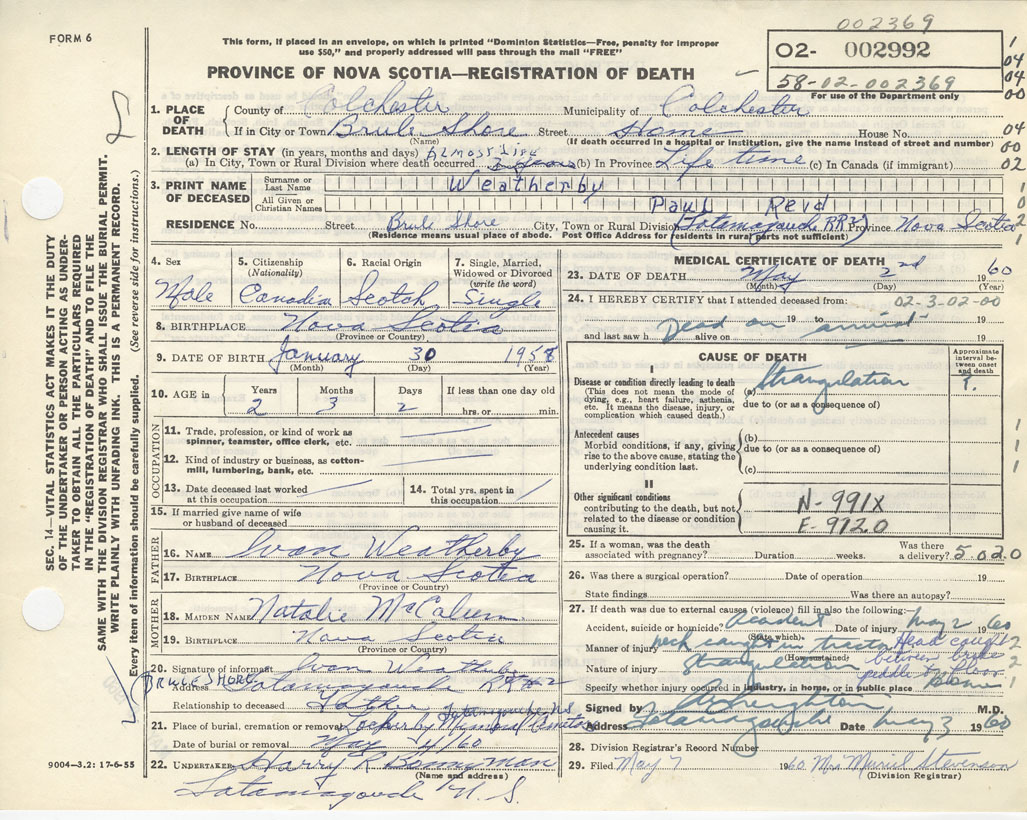 002369
FORM 6
This form, if placed in an envelope, on which is printed "Dominion Statistics—Free, penalty for improper
use $50," and properly addressed will pass through the mail "FREE"
O2- 002992
58-02-002369
For use of the Department only
PROVINCE OF NOVA SCOTIA—REGISTRATION OF DEATH
1. PLACE OF DEATH County of Colchester Municipality of Colchester
If in City or Town Brule Shore Street Home House No.
(Name) (If death occurred in a hospital or institution, give the name instead of street and number)
2. LENGTH OF STAY (in years, months and days) Almost
(a) In City, Town or Rural Division where death occurred 3 years (b) In Province Life time (c) In Canada (if immigrant)
3. PRINT NAME OF DECEASED Surname or Last Name Weatherby
All Given or Christian Names Paul Reid
RESIDENCE No. Street Brule Shore City, Town or Rural Division (Tatamagouche RR 2) Province Nova Scotia
(Residence means usual place of abode. Post Office Address for residents in rural parts not sufficient)
4. Sex Male
5. Citizenship (Nationality) Canadia
6. Racial Origin Scotch
7. Single, Married, Widowed or Divorced (write the word) Single
8. BIRTHPLACE Nova Scotia
(Province or Country)
9. DATE OF BIRTH January 30 1958
(Month) (Day) (Year)
10. AGE in Years 2 Months 3 Days 2 If less than one day old hrs. or min.
OCCUPATION
11. Trade, profession, or kind of work as spinner, teamster, office clerk, etc.
12. Kind of industry or business, as cotton-mill, lumbering, bank, etc.
13. Date deceased last worked at this occupation
14. Total yrs. spent in this occupation
15. If married give name of wife or husband of deceased
FATHER
16. NAME Ivan Weatherby
17. BIRTHPLACE Nova Scotia
(Province or Country)
MOTHER
18. MAIDEN NAME Natalie McCalum
19. BIRTHPLACE Nova Scotia
(Province or Country)
20. Signature of informant Ivan Weatherby
BRULE SHORE
Address Tatamagouche RR no 2
Relationship to deceased Father
21. Place of burial, cremation or removal Lockerby Memorial Cemetery Tatamagouche N.S.
Date of burial or removal May 4/60
22. UNDERTAKER Harry R Bonnyman
(Name and address)
Tatamagouche N. S.
MEDICAL CERTIFICATE OF DEATH
23. DATE OF DEATH May 2nd 1960
(Month) (Day) (Year)
24. I HEREBY CERTIFY that I attended deceased from: 02-3-02-00
19 to 19
and last saw h alive on Dead on arrival 19
CAUSE OF DEATH
Approximate interval between onset and death
I
Disease or condition directly leading to death
(This does not mean the mode of dying, e.g., heart failure, asthenia, etc. It means the disease, injury, or complication which caused death.)
(a) Strangulation ?
due to (or as a consequence of)
Antecedent causes
Morbid conditions, if any, giving rise to the above cause, stating the underlying condition last.
(b)
due to (or as a consequence of)
(c)
II
Other significant conditions contributing to the death, but not related to the disease or condition causing it.
N-991X
E-9120
25. If a woman, was the death associated with pregnancy? Duration weeks. Was there a delivery? 5.020
26. Was there a surgical operation? Date of operation 19
State findings Was there an autopsy?
27. If death was due to external causes (violence) fill in also the following:—
Accident, suicide or homicide? Accident Date of injury May 2 1960
(State which)
Manner of injury neck caught in tractor Head caught between brake peddle
(How sustained)
Nature of injury Strangulation
Specify whether injury occurred in industry, in home, or in public place Home
Signed by M.D.
Address Tatamagouche Date May 3 1960
28. Division Registrar's Record Number
29. Filed May 7 1960 Mrs Muriel Stevenson
(Division Registrar)
SEC. 14—VITAL STATISTICS ACT MAKES IT THE DUTY
OF THE UNDERTAKER OR PERSON ACTING AS UNDER-
TAKER TO OBTAIN ALL THE PARTICULARS REQUIRED
IN THE "REGISTRATION OF DEATH" AND TO FILE THE
SAME WITH THE DIVISION REGISTRAR WHO SHALL ISSUE THE BURIAL PERMIT.
WRITE PLAINLY WITH UNFADING INK. THIS IS A PERMANENT RECORD.
Every item of information should be carefully supplied. (See reverse side for instructions.)
9004—3.2: 17-6-55